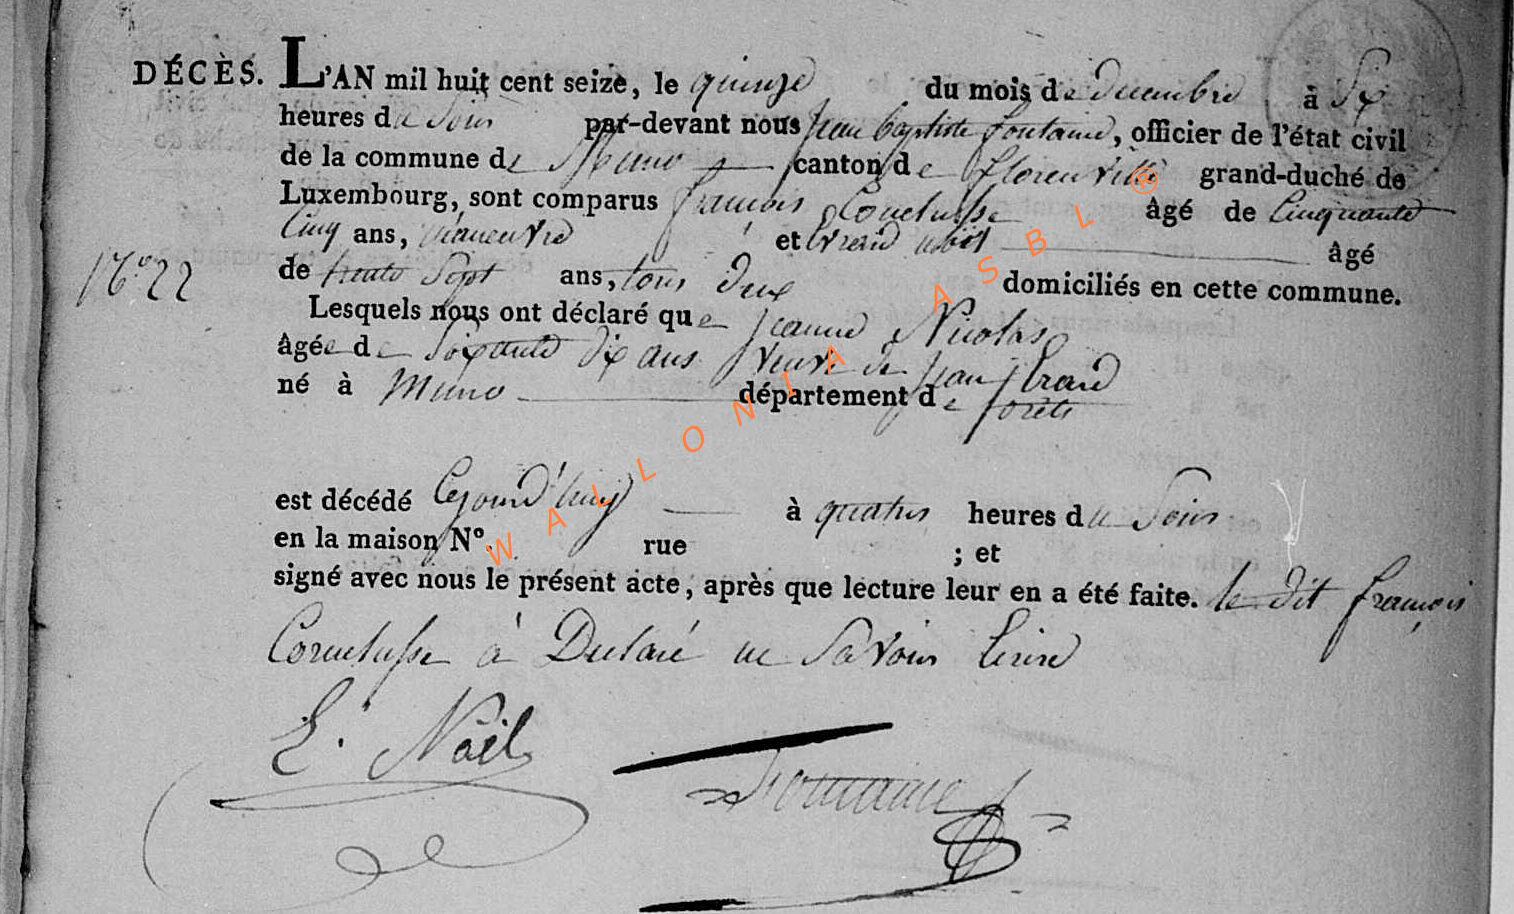 DÉCÈS. L'AN mil huit cent seize, le quinze du mois de decembre à Six
heures du Soir par-devant nous Jean baptiste fontaine, officier de l'état civil
de la commune de Muno canton de florenville grand-duché de
Luxembourg, sont comparus françois Cornelusse âgé de Cinquante
Cinq ans, manœuvre et Erard âgé
N° 22
de trente Sept ans, tous deux domiciliés en cette commune.
Lesquels nous ont déclaré que jeanne Nicolas
âgée de Soixante dix ans veuve de jean Erard
né à Muno département de forêts
est décédé Cejourd'huy à quatre heures du Soir
en la maison N° rue ; et
signé avec nous le présent acte, après que lecture leur en a été faite. le dit françois
Cornelusse à Declaré ne Savoir Ecrire
E. Noël
Fontaine
WALLONIA ASBL ®